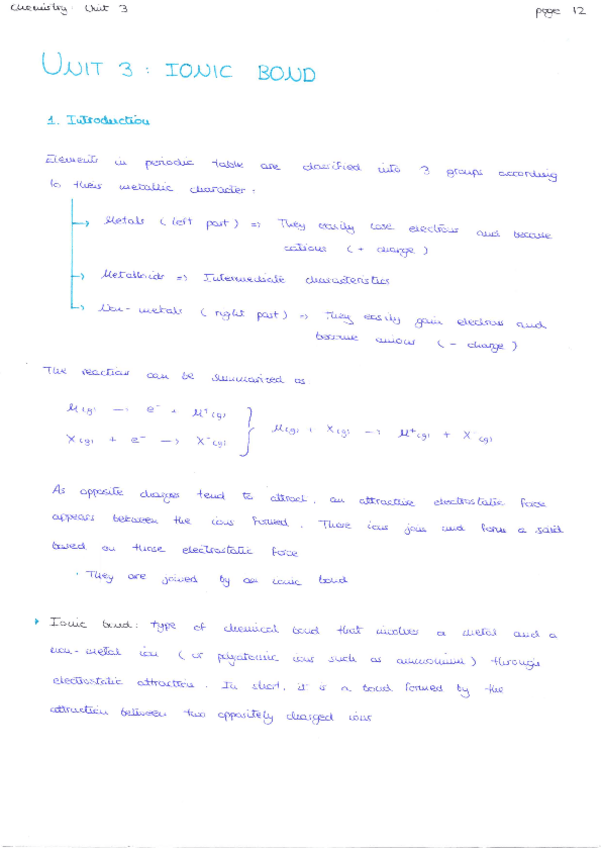 Chemistry: Unit 3 page 12
UNIT 3: IONIC BOND
1. Introduction
Elements in periodic table are classified into 3 groups according
to their metallic character:
→ Metals (left part) ⇒ They easily lose electrons and become
cations (+ charge)
→ Metalloids ⇒ Intermediate characteristics
→ Non-metals (right part) ⇒ They easily gain electrons and
become anions (- charge)
The reaction can be summarised as
M(g) → e⁻ + M⁺(g)
X(g) + e⁻ → X⁻(g)
M(g) + X(g) → M⁺(g) + X⁻(g)
As opposite charges tend to attract, an attractive electrostatic force
appears between the ions formed. These ions join and form a solid
based on those electrostatic force
· They are joined by an ionic bond
▸ Ionic bond: type of chemical bond that involves a metal and a
non-metal ion (or polyatomic ions such as ammonium) through
electrostatic attraction. In short, it is a bond formed by the
attraction between two oppositely charged ions